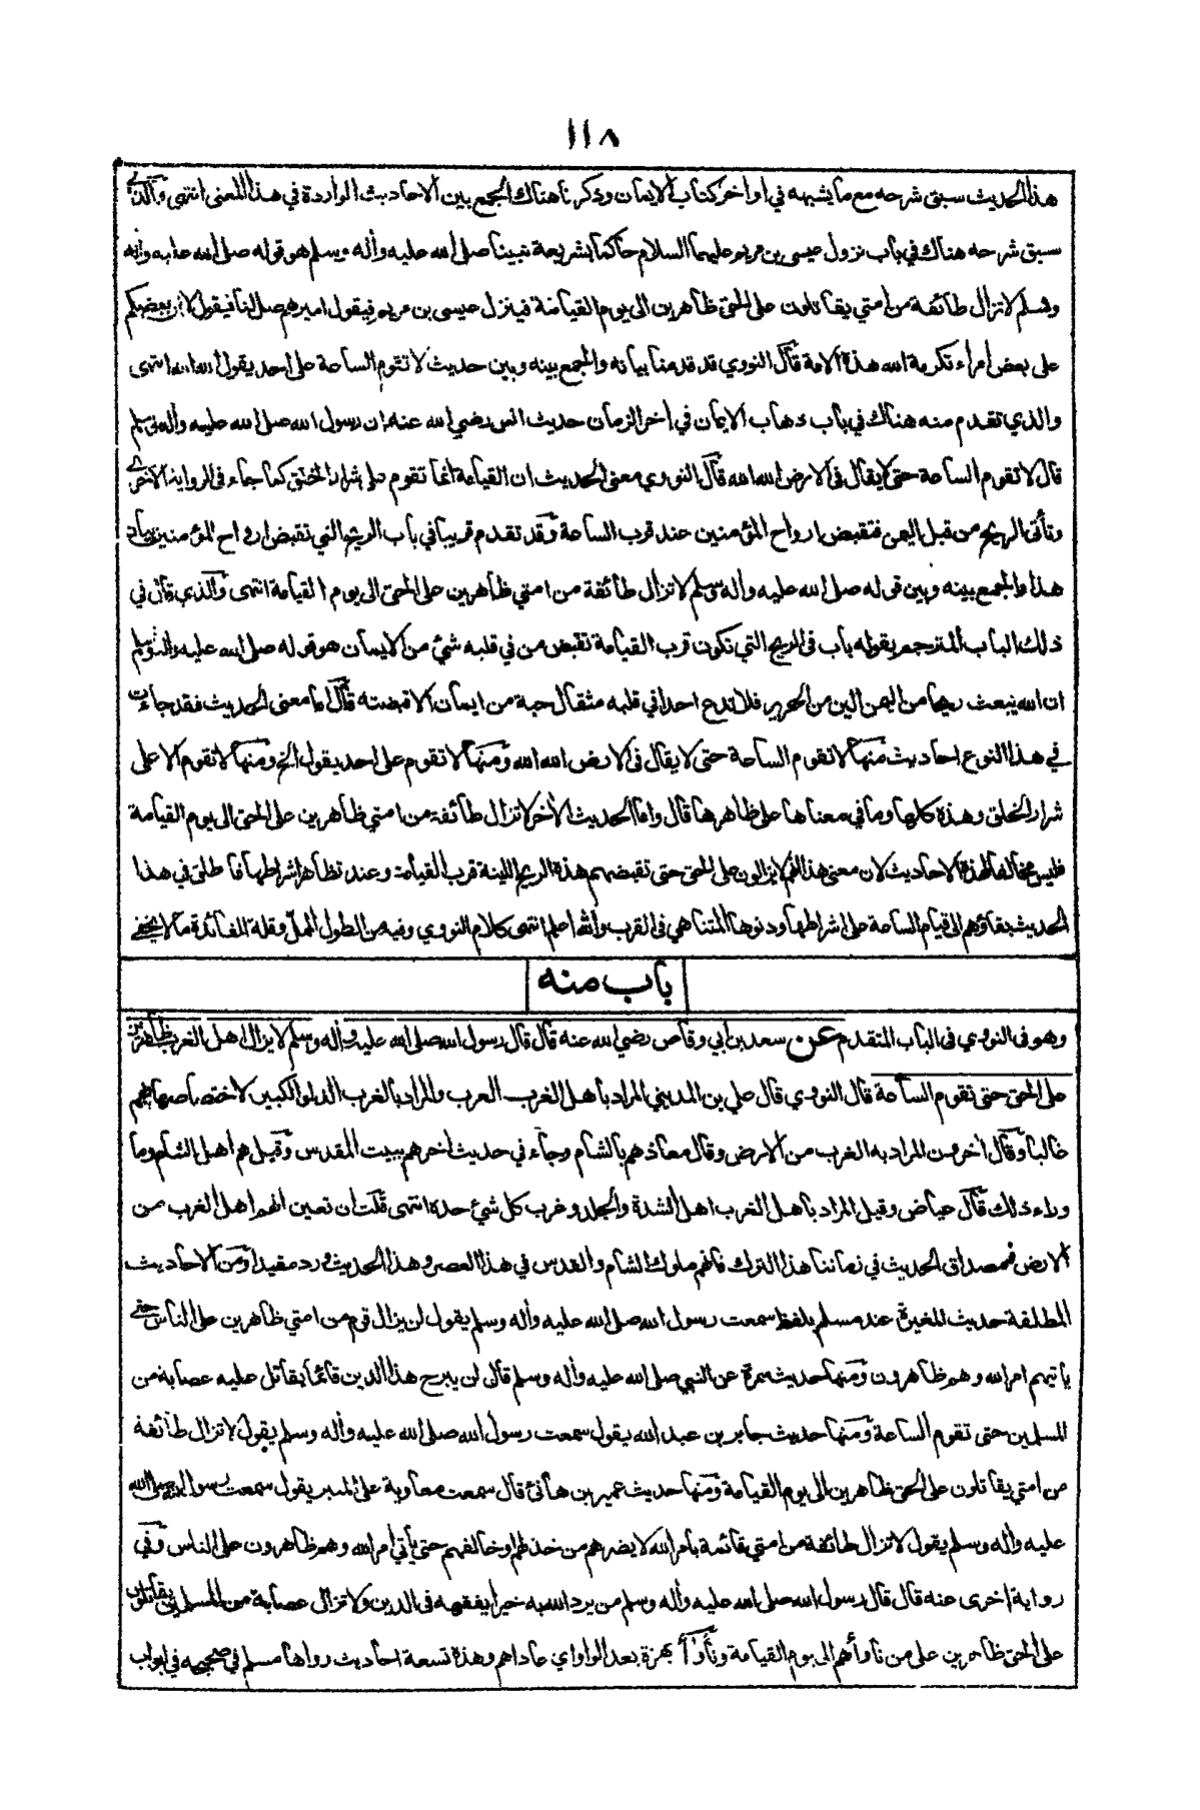 ١١٨
هذا الحديث سبق شرحه مع ما يشبهه في اواخر كتاب الايمان وذكرنا هناك الجمع بين الاحاديث الواردة في هذا المعنى انتهى والذي
سبق شرحه هناك في باب نزول عيسى بن مريم عليهما السلام حاكما بشريعة نبينا صلى الله عليه وأله وسلم هو قوله صلى الله عليه وأله
وسلم لا تزال طائفة من امتي يقاتلون على الحق ظاهرين الى يوم القيامة فينزل عيسى بن مريم فيقول اميرهم صل لنا فيقول لا ان بعضكم
على بعض امراء تكرمة الله هذه الامة قال النووي قد قدمنا بيانه والجمع بينه وبين حديث لا تقوم الساعة على احد يقول الله الله انتهى
والذي تقدم منه هناك في باب ذهاب الايمان في أخر الزمان حديث انس رضي الله عنه ان رسول الله صلى الله عليه وأله وسلم
قال لا تقوم الساعة حتى لا يقال فى الارض الله الله قال النووي معنى الحديث ان القيامة انما تقوم على شرار الخلق كما جاء فى الرواية الاخرى
وتأتى الريح من قبل اليمن فتقبض ارواح المؤمنين عند قرب الساعة وقد تقدم قريبا في باب الريح التي تقبض ارواح المؤمنين بيان
هذا والجمع بينه وبين قوله صلى الله عليه وأله وسلم لا تزال طائفة من امتي ظاهرين على الحق الى يوم القيامة انتهى والذي قال في
ذلك الباب المترجم بقوله باب فى الريح التي تكون قرب القيامة تقبض من في قلبه شئ من الايمان هو قوله صلى الله عليه وأله وسلم
ان الله يبعث ريحا من اليمن الين من الحرير فلا تدع احدا في قلبه مثقال حبة من ايمان الا قبضته قال اما معنى الحديث فقد جاءت
في هذا النوع احاديث منها لا تقوم الساعة حتى لا يقال فى الارض الله الله ومنها لا تقوم على احد يقول الخ ومنها لا تقوم الا على
شرار الخلق وهذه كلها وما في معناها على ظاهرها قال واما الحديث الأخر لا تزال طائفة من امتي ظاهرين على الحق الى يوم القيامة
فليس مخالفا لهذه الاحاديث لان معنى هذا انهم لا يزالون على الحق حتى تقبضهم هذه الريح اللينة قرب القيامة وعند تظاهر اشراطها فاطلق في هذا
الحديث بقاؤهم الى قيام الساعة على اشراطها ودنوها المتناهي فى القرب والله اعلم انتهى كلام النووي وفيه من الطول الممل وقلة الفائدة ما لا يخفى
باب منه
وهو فى النووي فى الباب المتقدم عن سعد بن أبي وقاص رضي الله عنه قال قال رسول الله صلى الله عليه وأله وسلم لا يزال اهل الغرب ظاهرين
على الحق حتى تقوم الساعة قال النووي قال علي بن المديني المراد باهل الغرب العرب والمراد بالغرب الدلو الكبير لاختصاصهم بها
غالبا وقال أخرون المراد به الغرب من الارض وقال معاذ هم بالشام وجاء في حديث أخر هم ببيت المقدس وقيل هم اهل الشام وما
وراء ذلك قال عياض وقيل المراد باهل الغرب اهل الشدة والجلد وغرب كل شئ حده انتهى قلت ان تعين انهم اهل الغرب من
الارض فمصداق الحديث في زماننا هذا الترك فانهم ملوك الشام والقدس في هذا العصر وهذا الحديث ورد مقيدا ومن الاحاديث
المطلقة حديث المغيرة عند مسلم بلفظ سمعت رسول الله صلى الله عليه وأله وسلم يقول لن يزال قوم من امتي ظاهرين على الناس حتى
يأتيهم امر الله وهم ظاهرون ومنها حديث سمرة عن النبي صلى الله عليه وأله وسلم قال لن يبرح هذا الدين قائما يقاتل عليه عصابة من
المسلمين حتى تقوم الساعة ومنها حديث جابر بن عبد الله يقول سمعت رسول الله صلى الله عليه وأله وسلم يقول لا تزال طائفة
من امتي يقاتلون على الحق ظاهرين الى يوم القيامة ومنها حديث عمير بن هانئ قال سمعت معاوية على المنبر يقول سمعت رسول الله صلى الله
عليه وأله وسلم يقول لا تزال طائفة من امتي قائمة بامر الله لا يضرهم من خذلهم او خالفهم حتى يأتي امر الله وهم ظاهرون على الناس وفي
رواية اخرى عنه قال قال رسول الله صلى الله عليه وأله وسلم من يرد الله به خيرا يفقهه فى الدين ولا تزال عصابة من المسلمين يقاتلون
على الحق ظاهرين على من ناوأهم الى يوم القيامة وناوأ بهمزة بعد الواو اي عاداهم وهذه تسعة احاديث رواها مسلم في صحيحه في ابواب